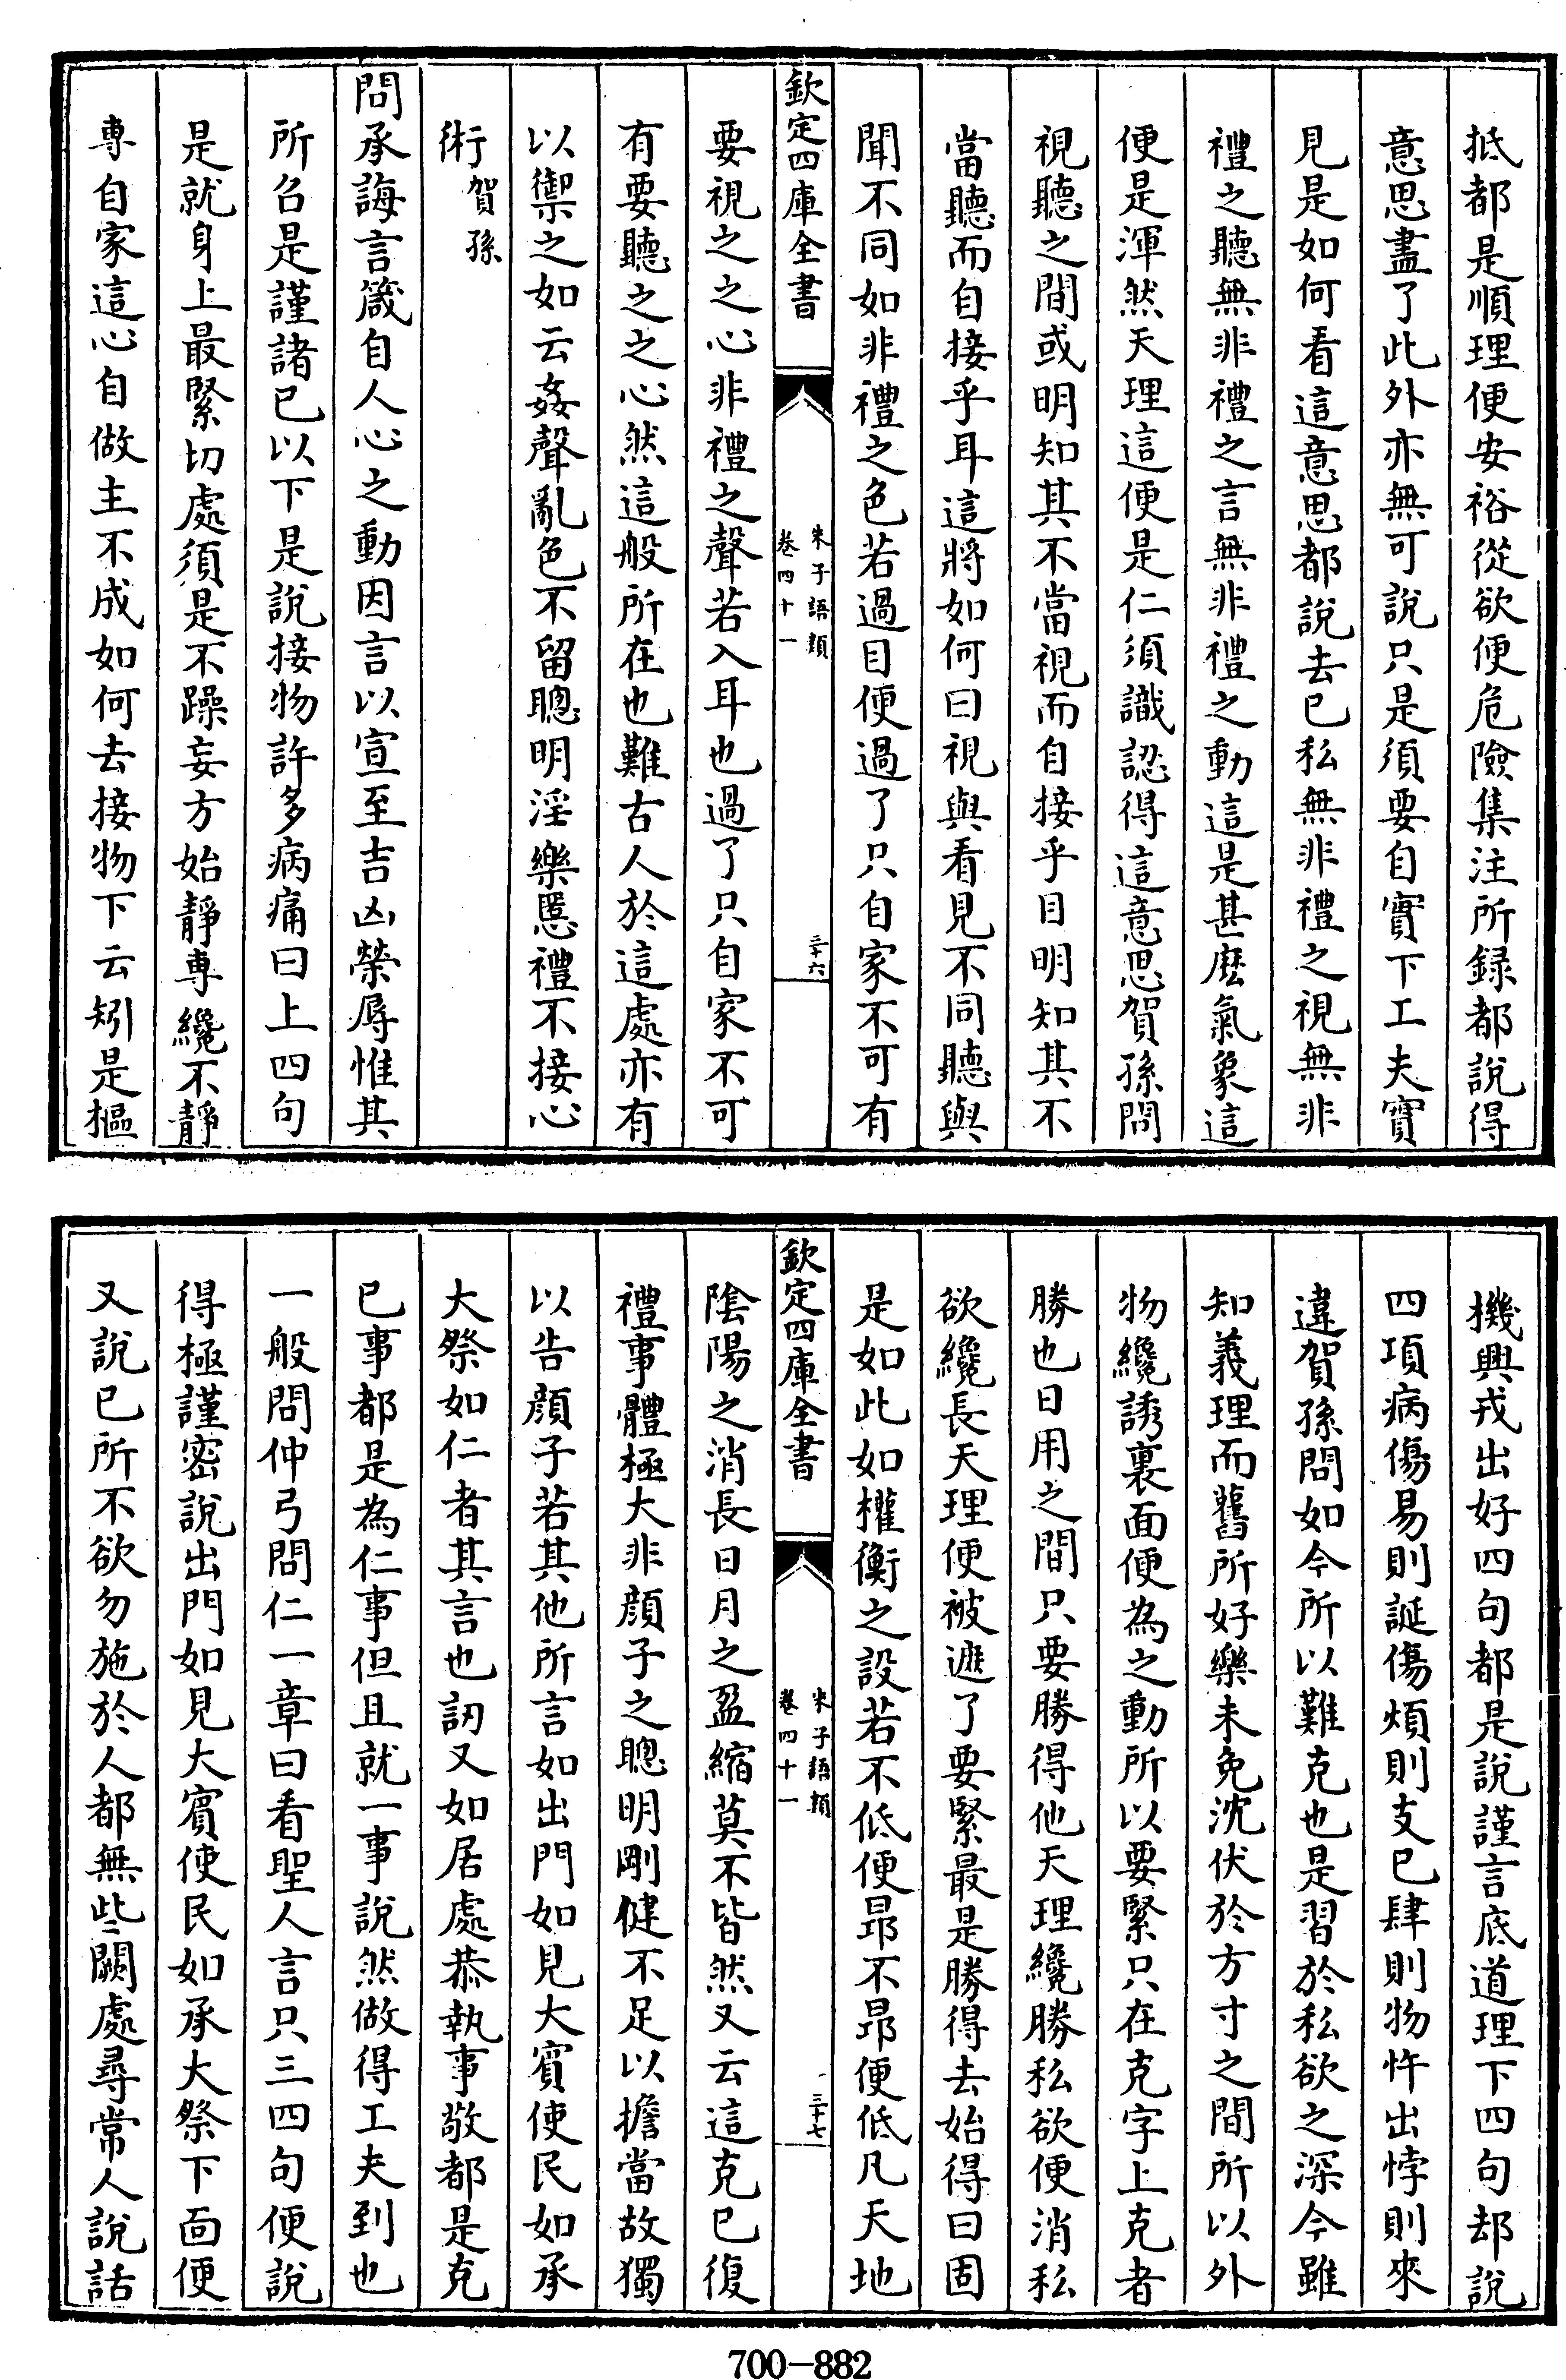 抵都是順理便安裕從欲便危險集注所録都說得
意思盡了此外亦無可說只是須要自實下工夫實
見是如何看這意思都說去已私無非禮之視無非
禮之聽無非禮之言無非禮之動這是甚麽氣象這
便是渾然天理這便是仁須識認得這意思賀孫問
視聽之間或明知其不當視而自接乎目明知其不
當聽而自接乎耳這將如何曰視與看見不同聽與
聞不同如非禮之色若過目便過了只自家不可有
欽定四庫全書
朱子語類
卷四十一
三十六
要視之之心非禮之聲若入耳也過了只自家不可
有要聽之之心然這般所在也難古人於這處亦有
以禦之如云姦聲亂色不留聰明淫樂慝禮不接心
術賀孫
問承誨言箴自人心之動因言以宣至吉凶榮辱惟其
所召是謹諸已以下是說接物許多病痛曰上四句
是就身上最緊切處須是不躁妄方始靜専纔不靜
専自家這心自做主不成如何去接物下云矧是樞
機興戎出好四句都是說謹言底道理下四句却說
四項病傷易則誕傷煩則支已肆則物忤出悖則來
違賀孫問如今所以難克也是習於私欲之深今雖
知義理而舊所好樂未免沈伏於方寸之間所以外
物纔誘裏面便為之動所以要緊只在克字上克者
勝也日用之間只要勝得他天理纔勝私欲便消私
欲纔長天理便被遮了要緊最是勝得去始得曰固
是如此如權衡之設若不低便昂不昂便低凡天地
欽定四庫全書
朱子語類
卷四十一
三十七
陰陽之消長日月之盈縮莫不皆然又云這克已復
禮事體極大非顔子之聰明剛健不足以擔當故獨
以告顔子若其他所言如出門如見大賓使民如承
大祭如仁者其言也訒又如居處恭執事敬都是克
已事都是為仁事但且就一事說然做得工夫到也
一般問仲弓問仁一章曰看聖人言只三四句便說
得極謹密說出門如見大賓使民如承大祭下面便
又說已所不欲勿施於人都無些闕處尋常人說話
700-882